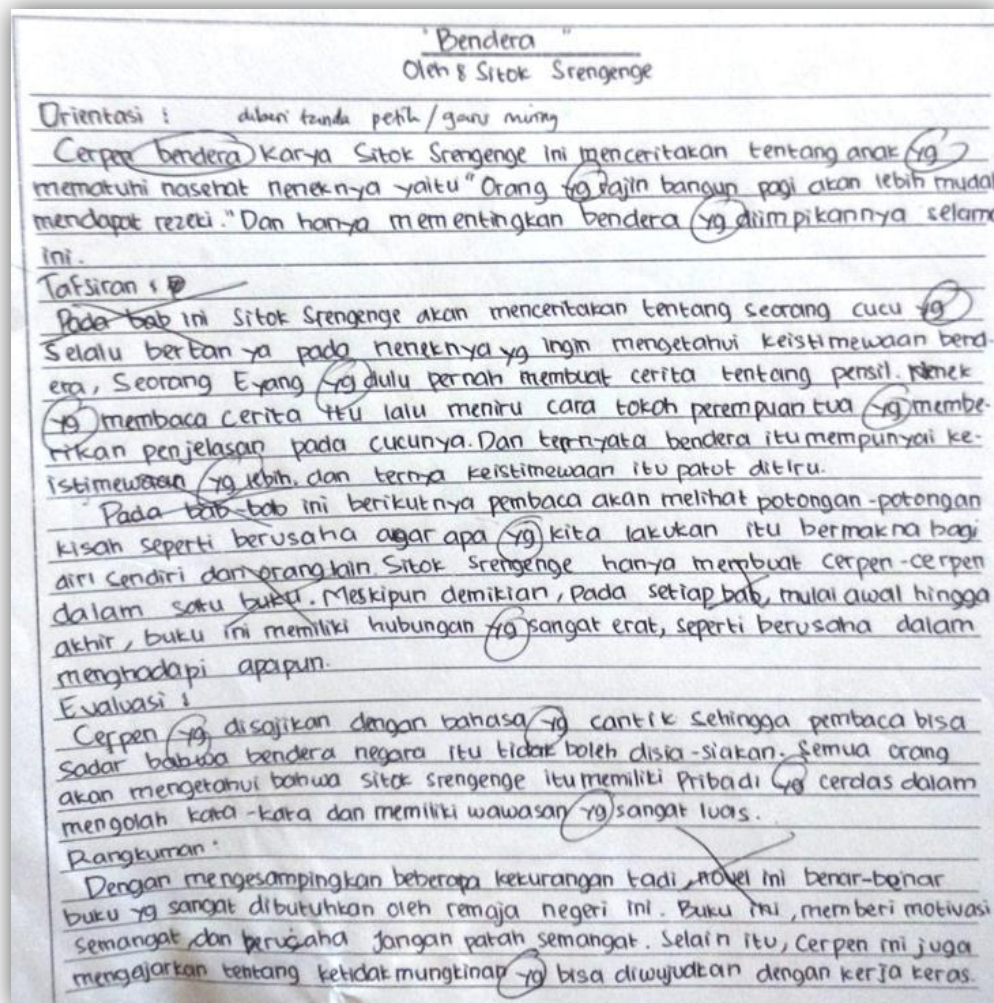 "Bendera"
Oleh : Sitok Srengenge
Orientasi : diberi tanda petik / garis miring
Cerpen bendera karya Sitok Srengenge ini menceritakan tentang anak yg
mematuhi nasehat neneknya yaitu "Orang yg rajin bangun pagi akan lebih mudah
mendapat rezeki." Dan hanya mementingkan bendera yg diimpikannya selama
ini.
Tafsiran :
Pada bab ini Sitok Srengenge akan menceritakan tentang seorang cucu yg
Selalu bertanya pada neneknya yg ingin mengetahui keistimewaan bend-
era, Seorang Eyang yg dulu pernah membuat cerita tentang pensil. Nenek
yg membaca cerita itu lalu meniru cara tokoh perempuan tua yg membe-
rikan penjelasan pada cucunya. Dan ternyata bendera itu mempunyai ke-
istimewaan yg lebih. dan keistimewaan itu patot ditiru.
Pada bab-bab ini berikutnya pembaca akan melihat potongan-potongan
kisah seperti berusaha agar apa yg kita lakukan itu bermakna bagi
diri sendiri dan orang lain. Sitok Srengenge hanya membuat cerpen-cerpen
dalam satu buku. Meskipun demikian, Pada setiap bab, mulai awal hingga
akhir, buku ini memiliki hubungan yg sangat erat, seperti berusaha dalam
menghadapi apapun.
Evaluasi :
Cerpen yg disajikan dengan bahasa yg cantik sehingga pembaca bisa
sadar bahwa bendera negara itu tidak boleh disia-siakan. Semua orang
akan mengetahui bahwa sitok srengenge itu memiliki Pribadi yg cerdas dalam
mengolah kata-kata dan memiliki wawasan yg sangat luas.
Rangkuman :
Dengan mengesampingkan beberapa kekurangan tadi, novel ini benar-benar
buku yg sangat dibutuhkan oleh remaja negeri ini. Buku ini, memberi motivasi
semangat dan berusaha jangan patah semangat. Selain itu, Cerpen ini juga
mengajarkan tentang ketidakmungkinan yg bisa diwujudkan dengan kerja keras.